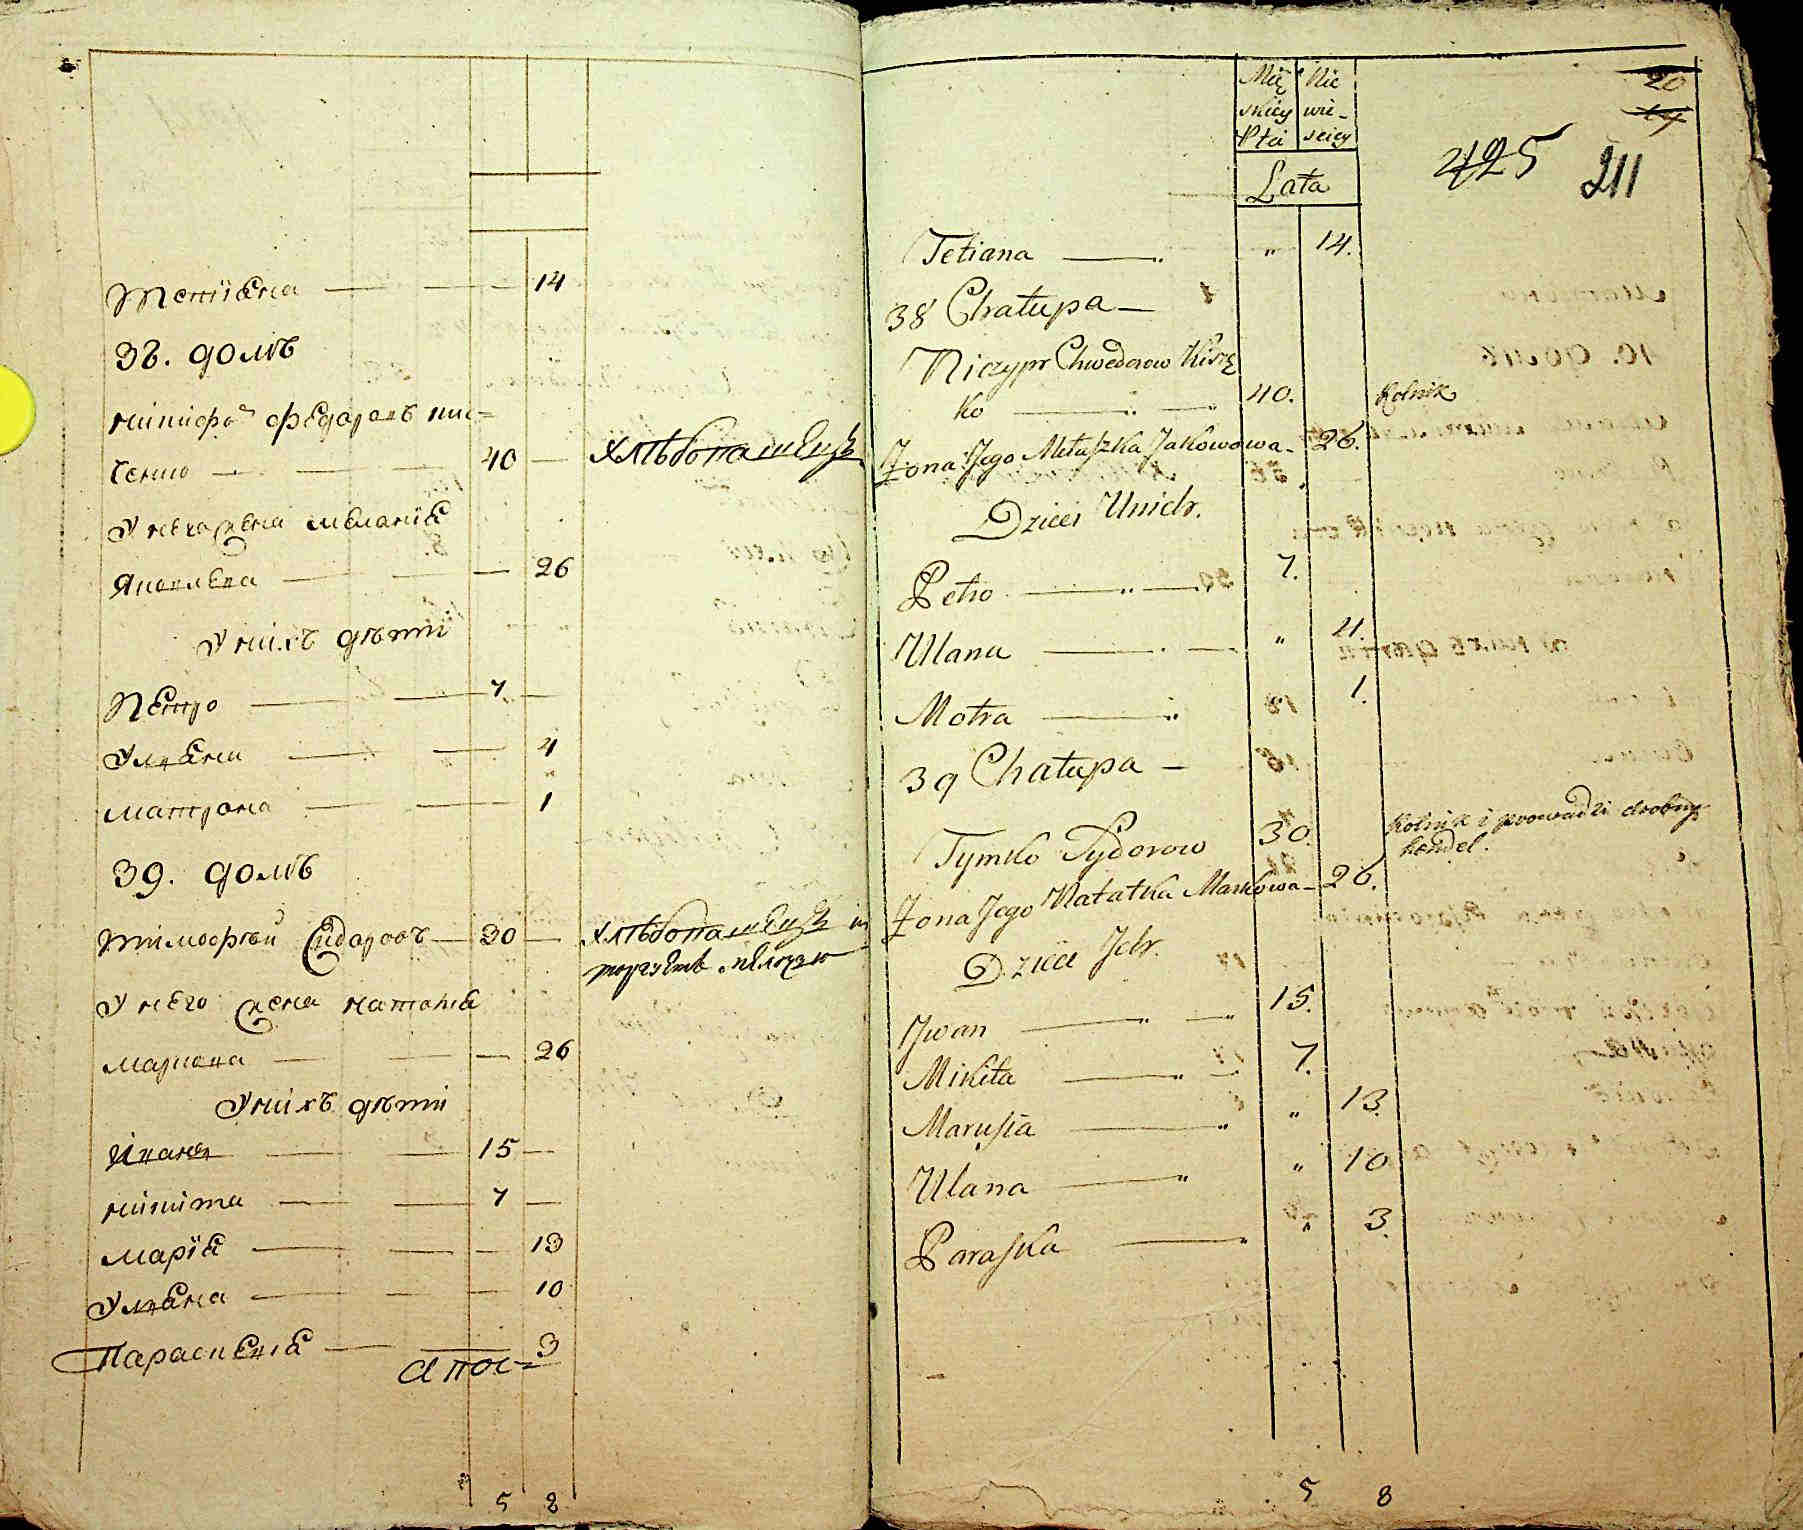 Татіѧна — 14
38. домъ
никифоръ федоровъ кис=
ченко — 40 — хлѣбопашецъ
У него жена меланія
Яковлева — 26
У нихъ дѣти
Петро — 7 —
Улѧна — 4
матрона — 1
39. домъ
тимофѣй Сидоровъ — 30 — хлѣбопашецъ и
торгуетъ мѣлочю
У него жена наталія
маркова — 26
У нихъ дѣти
Иванъ — 15 —
никита — 7 —
марія — 13
Улѧна — 10
Параскевія — 3
а пос=
5 8
Męskiey Płci
Niewieściey
Lata
20
19
425 211
Tetiana — „ 14.
38 Chałupa —
Niczypr Chwedorow Kiszę
ko — 40. Rolnik
Żona Jego Mełaszka Jakowowa — 26.
Dzieci Unich.
Petro — 7.
Ulana — „ 4.
Motra — 1.
39 Chałupa —
Tymko Sydorow 30. Rolnik i prowadzi drobny
handel.
Żona Jego Natałka Markowa — 26.
Dzieci Ich.
Jwan — 15.
Mikita — 7.
Marusia — „ 13.
Ulana — „ 10
Paraska — „ 3.
5 8